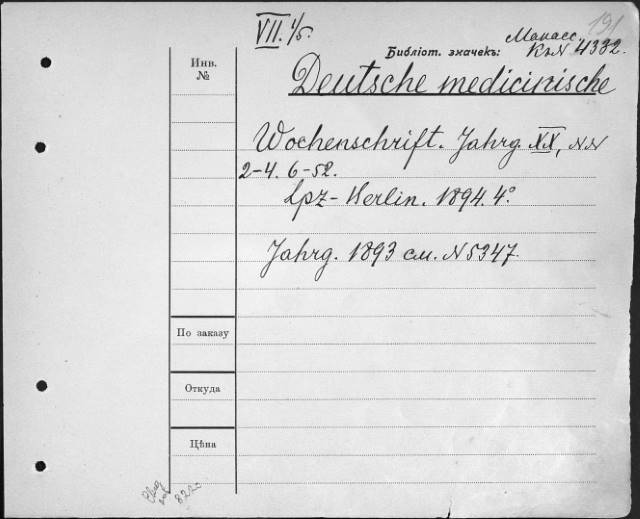 191
VII. 1/5.
Манасс.
Библіот. значекъ: К. N 4382.
Инв. №
Deutsche medicinische
Wochenschrift. Jahrg. XX, NN
2-4. 6-52.
Lpz-Berlin. 1894. 4°
Jahrg. 1893 см. N 5347.
По заказу
Откуда
Цѣна